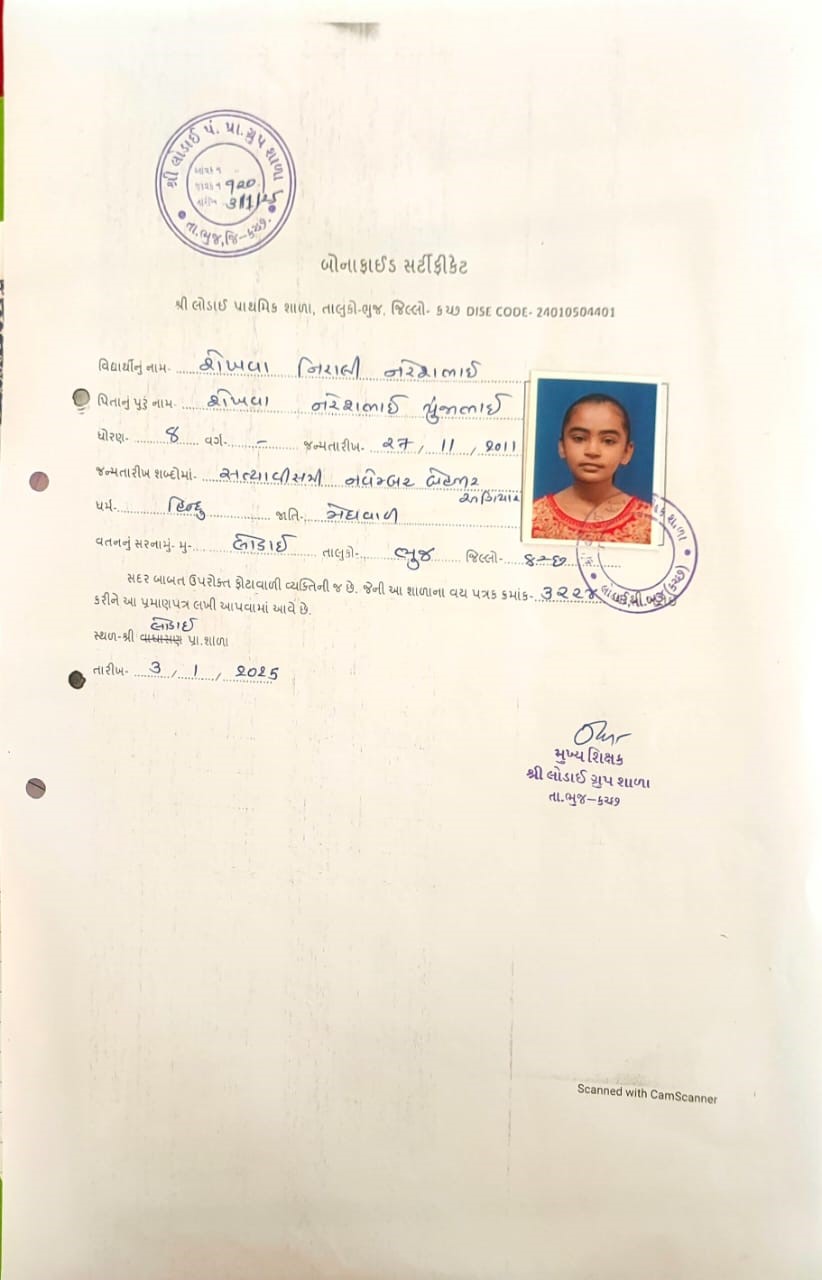 શ્રી લોડાઈ પં. પ્રા. ગ્રુપ શાળા
જાવક નં ૧૨૦
તારીખ 3/1/25
તા.ભુજ,જિ-કચ્છ.
બોનાફાઈડ સર્ટીફીકેટ
શ્રી લોડાઈ પાથમિક શાળા, તાલુકો-ભુજ, જિલ્લો- કચ્છ DISE CODE- 24010504401
વિદ્યાર્થીનું નામ- શેખવા નિરાલી નરેશભાઈ
પિતાનું પુરું નામ- શેખવા નરેશભાઈ પુંજાભાઈ
ધોરણ- 8 વર્ગ- - જન્મતારીખ- ૨૭/11/૨011
જન્મતારીખ શબ્દોમાં- સત્યાવીસમી નવેમ્બર બેહજાર અગિયાર
ધર્મ- હિન્દુ જાતિ- મેઘવાળ
વતનનું સરનામું- મુ- લોડાઈ તાલુકો- ભુજ જિલ્લો- કચ્છ
સદર બાબત ઉપરોક્ત ફોટાવાળી વ્યક્તિની જ છે. જેની આ શાળાના વય પત્રક કમાંક- ૩૨૨૪
કરીને આ પ્રમાણપત્ર લખી આપવામાં આવે છે.
લોડાઈ
સ્થળ-શ્રી વાઘાસણ પ્રા.શાળા
તારીખ- 3/1/૨૦૨5
મુખ્ય શિક્ષક
શ્રી લોડાઈ ગ્રુપ શાળા
તા.ભુજ-કચ્છ
Scanned with CamScanner